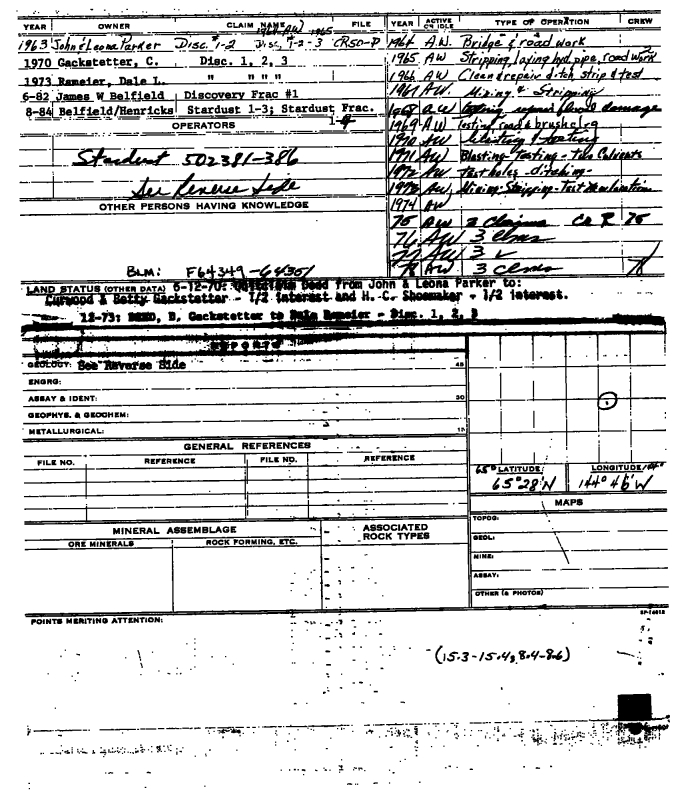 YEAR OWNER CLAIM NAME FILE
1964-AW 1965
1963 John & Leona Parker Disc. #1-2 Disc, #1-2-3 CR50-P
1970 Gackstetter, C. Disc. 1, 2, 3
1973 Rameier, Dale L. " " " "
6-82 James W Belfield Discovery Frac #1
8-84 Belfield/Henricks Stardust 1-3; Stardust Frac.
OPERATORS
Stardust 502381-386
See Reverse Side
OTHER PERSONS HAVING KNOWLEDGE
BLM: F64349-64351
YEAR ACTIVE OR IDLE TYPE OF OPERATION CREW
1964 A.W. Bridge & road work
1965 AW Stripping, laying hyd. pipe, road work 2
1966 AW Clean & repair ditch, strip & test
1967 AW. Mining & Stripping
1968 AW testing, repair flood damage
1969 AW Testing, road & brushclrg
1970 AW blasting & testing
1971 AW Blasting-Testing-Two Culverts
1972 AW Test holes-ditching-
1973 AW. Mining-Stripping-
1974 AW
75 AW 3 Claims 75
76 AW 3 clms
77 AW 3 ✓
78 AW 3 clms 78
LAND STATUS (OTHER DATA) 6-12-70: Deed from John & Leona Parker to:
Curwood & Betty Gackstetter - 1/2 interest and H. C. Shoemaker - 1/2 interest.
12-73: DEED, B. Gackstetter to Dale Rameier - Disc. 1, 2, 3
REPORTS
GEOLOGY: See Reverse Side
ENGRG:
ASSAY & IDENT:
GEOPHYS. & GEOCHEM:
METALLURGICAL:
GENERAL REFERENCES
FILE NO. REFERENCE FILE NO. REFERENCE
65° LATITUDE: LONGITUDE:
65°28'N 144° 46'W
MAPS
TOPOG:
GEOL:
MINE:
ASSAY:
OTHER (& PHOTOS)
MINERAL ASSEMBLAGE ASSOCIATED ROCK TYPES
ORE MINERALS ROCK FORMING, ETC.
POINTS MERITING ATTENTION:
(15.3-15.4, 8.4-8.6)